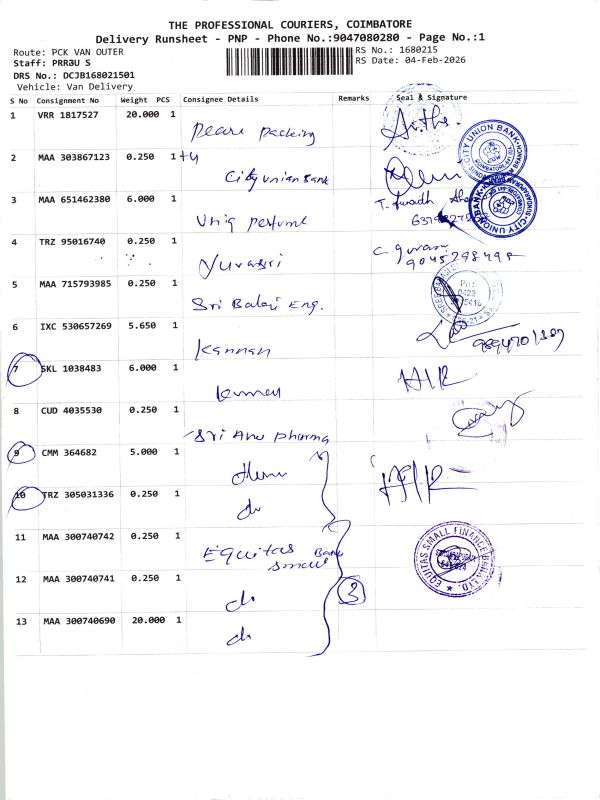 THE PROFESSIONAL COURIERS, COIMBATORE
Delivery Runsheet - PNP - Phone No.:9047080280 - Page No.:1
Route: PCK VAN OUTER
Staff: PRR3U S
DRS No.: DCJB168021501
Vehicle: Van Delivery
RS No.: 1680215
RS Date: 04-Feb-2026
S No Consignment No Weight PCS Consignee Details Remarks Seal & Signature
1 VRR 1817527 20.000 1
Pearl packing
2 MAA 303867123 0.250 1 +4
City Union Bank
3 MAA 651462380 6.000 1
Uniq perfume
4 TRZ 95016740 0.250 1
Yuvasri
5 MAA 715793985 0.250 1
Sri Balaji Eng.
6 IXC 530657269 5.650 1
Kannan
7 SKL 1038483 6.000 1
8 CUD 4035530 0.250 1
Sri Anu pharma
9 CMM 364682 5.000 1
10 TRZ 305031336 0.250 1
do
11 MAA 300740742 0.250 1
Equitas Bank
small
12 MAA 300740741 0.250 1
do
3
13 MAA 300740690 20.000 1
do
CITY UNION BANK
CITY UNION BANK
EQUITAS SMALL FINANCE BANK LTD.